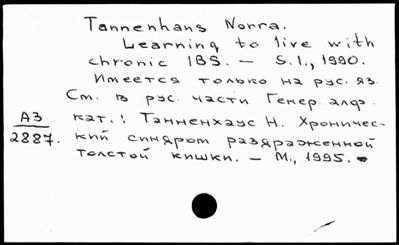 Tannenhans Norra.
Learning to live with
chronic IBS. – S.I., 1990.
Имеется только на рус. яз.
См. в рус. части Генер. алф.
АЗ кат.: Танненхаус Н. Хроничес-
2887. кий синдром раздраженной
толстой кишки. – М., 1995.